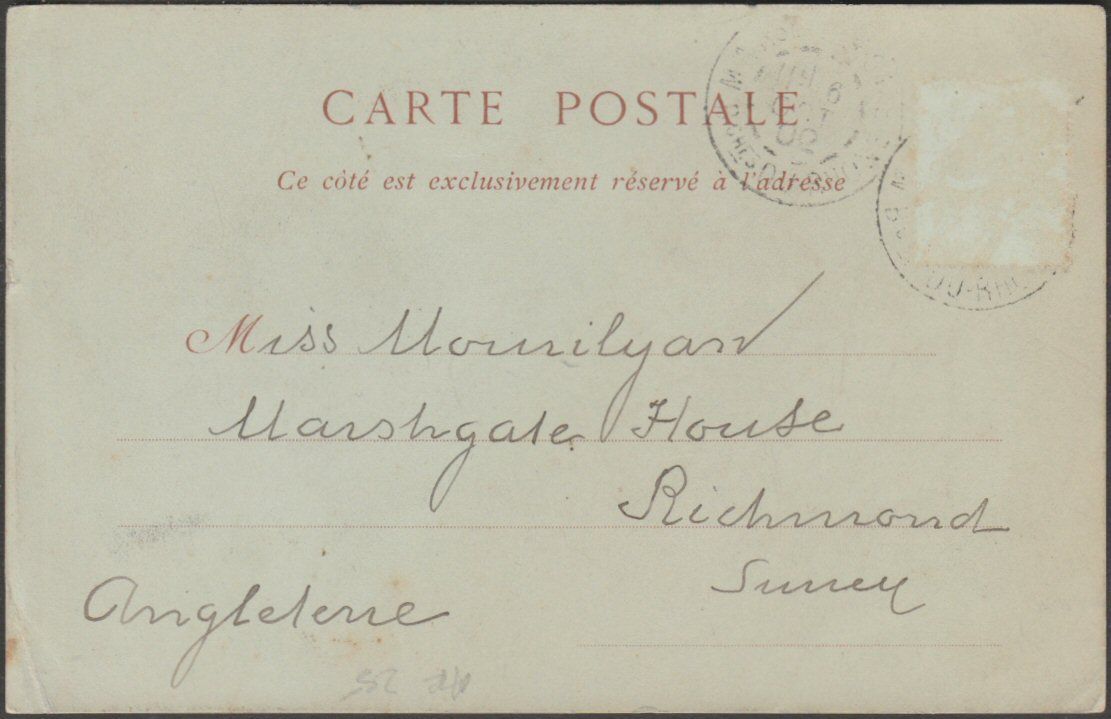 CARTE POSTALE
Ce côté est exclusivement réservé à l'adresse
Miss Mourilyan
Marshgate House
Richmond
Surrey
Angleterre
6
DU-RH